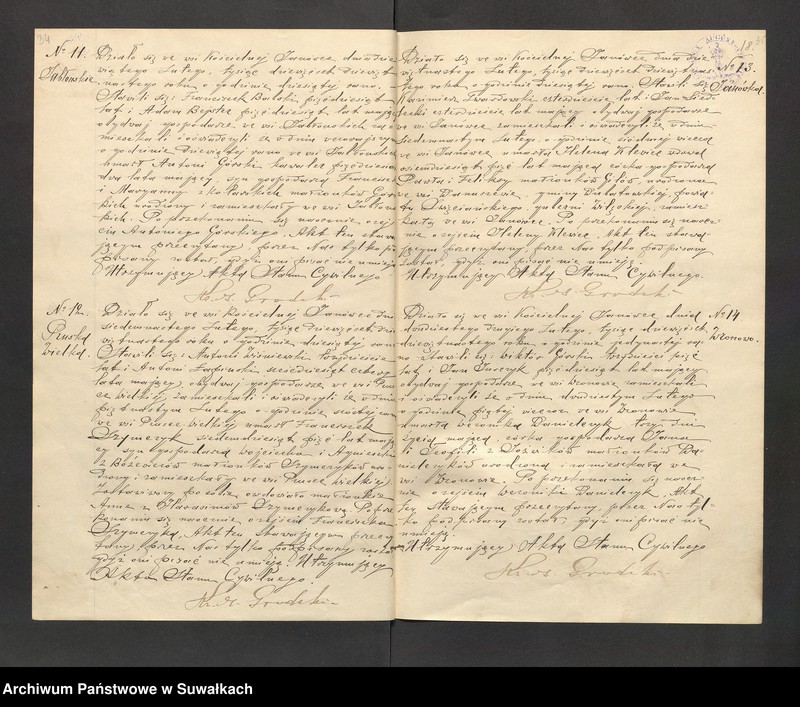 № 11.
Jabłońskie
Działo się we wsi Kościelnej Janówce dwudzie
stego Lutego, tysiąc dziewięćset dziewięt
nastego roku o godzinie dziesiątej rano.
Stawili się: Franciszek pięćdziesiąt
lat i Adam pięćdziesiąt lat mający
obydwaj gospodarze we wsi Jabłońskich za
mieszkali i oświadczyli, że o dniu wczorajszym
o godzinie dziewiątej rano we wsi Jabłońskich
zmarł Antoni Górski kawaler pięćdziesiąt
dwa lata mający, syn gospodarza Franciszka
i Maryanny z małżonków Gór
skich rodzony i zamieszkały we wsi Jabłoń
skich. Po przekonaniu się naocznie o zej
ściu Antoniego Górskiego. Akt ten stawa
jącym przeczytany, przez Nas tylko po
pisany został, gdyż oni pisać nie umieją.
Utrzymujący Akta Stanu Cywilnego
Ks. Grodzki
№ 12.
Pruska
Wielka.
Działo się we wsi Kościelnej Janówce dnia
siedemnastego Lutego, tysiąc dziewięćset dzie
więtnastego roku o godzinie dziesiątej rano
Stawili się: Antoni Wiśniewski trzydzieście
lat i Antoni sześćdziesiąt cztery
lata mający, obydwaj gospodarze we wsi Prus
ce Wielkiej zamieszkali i oświadczyli że o dniu
piętnastym Lutego o godzinie szóstej rano
we wsi Prusce Wielkiej umarł Franciszek
Szymczyk siedemdziesiąt pięć lat mają
cy syn gospodarza Wojciecha i Agnieszki
z małżonków Szymczyków ro
dzony i zamieszkały we wsi Prusce Wielkiej
Zostawiwszy po sobie owdowiałą małżonkę
Annę z Szymczykową. Po prze
konaniu się naocznie o zejściu Franciszka
Szymczyka, Akt ten stawającym przeczy
tany, przez Nas tylko podpisany został
gdyż oni pisać nie umieją. Utrzymujący
Akta Stanu Cywilnego.
Ks. Grodzki
№ 13.
Janówka.
Działo się we wsi Kościelnej Janówce dnia dzie
więtnastego Lutego, tysiąc dziewięćset dziewiętnas
tego roku o godzinie dziesiątej rano. Stawili się
Kazimierz Twardowski czterdzieście lat i Jan Sied
lecki czterdzieście lat mający obydwaj gospodarze
we wsi Janówce zamieszkali i oświadczyli, że o dniu
siedemnastym Lutego o godzinie siódmej wieczór
we wsi Janówce umarła Helena Klewiec wdowa
osiemdziesiąt pięć lat mająca córka gospodarzy
Pawła i Feliksy małżonków rodzona
we wsi gminy powia
tu gubernii Wileńskiej, zamiesz
kała we wsi Janówce. Po przekonaniu się naocz
nie o zejściu Heleny Klewiec, Akt ten stawa
jącym przeczytany, przez Nas tylko podpisany
został, gdyż oni pisać nie umieją.
Utrzymujący Akta Stanu Cywilnego.
Ks. Grodzki
№ 14
Wronowo.
Działo się we wsi Kościelnej Janówce dnia
dwudziestego drugiego Lutego, tysiąc dziewięćset
dziewiętnastego roku o godzinie jedynastej ra
no. Stawili się: Wiktor Górski trzydzieście pięć
lat i Jan pięćdziesiąt lat mający
obydwaj gospodarze we wsi Wronowie zamieszkali
i oświadczyli że o dniu dwudziestym Lutego
o godzinie piątej wieczór we wsi Wronowie
zmarła Weronika Danielczyk trzy dni
życia mająca, córka gospodarza Jana
i Teofili z małżonków Da
nielczyków urodzona i zamieszkała we
wsi Wronowie. Po przekonaniu się naocz
nie o zejściu Weroniki Danielczyk, Akt
ten stawającym przeczytany, przez Nas tyl
ko podpisany został, gdyż oni pisać nie
umieją.
Utrzymujący Akta Stanu Cywilnego
Ks. Grodzki
Archiwum Państwowe w Suwałkach